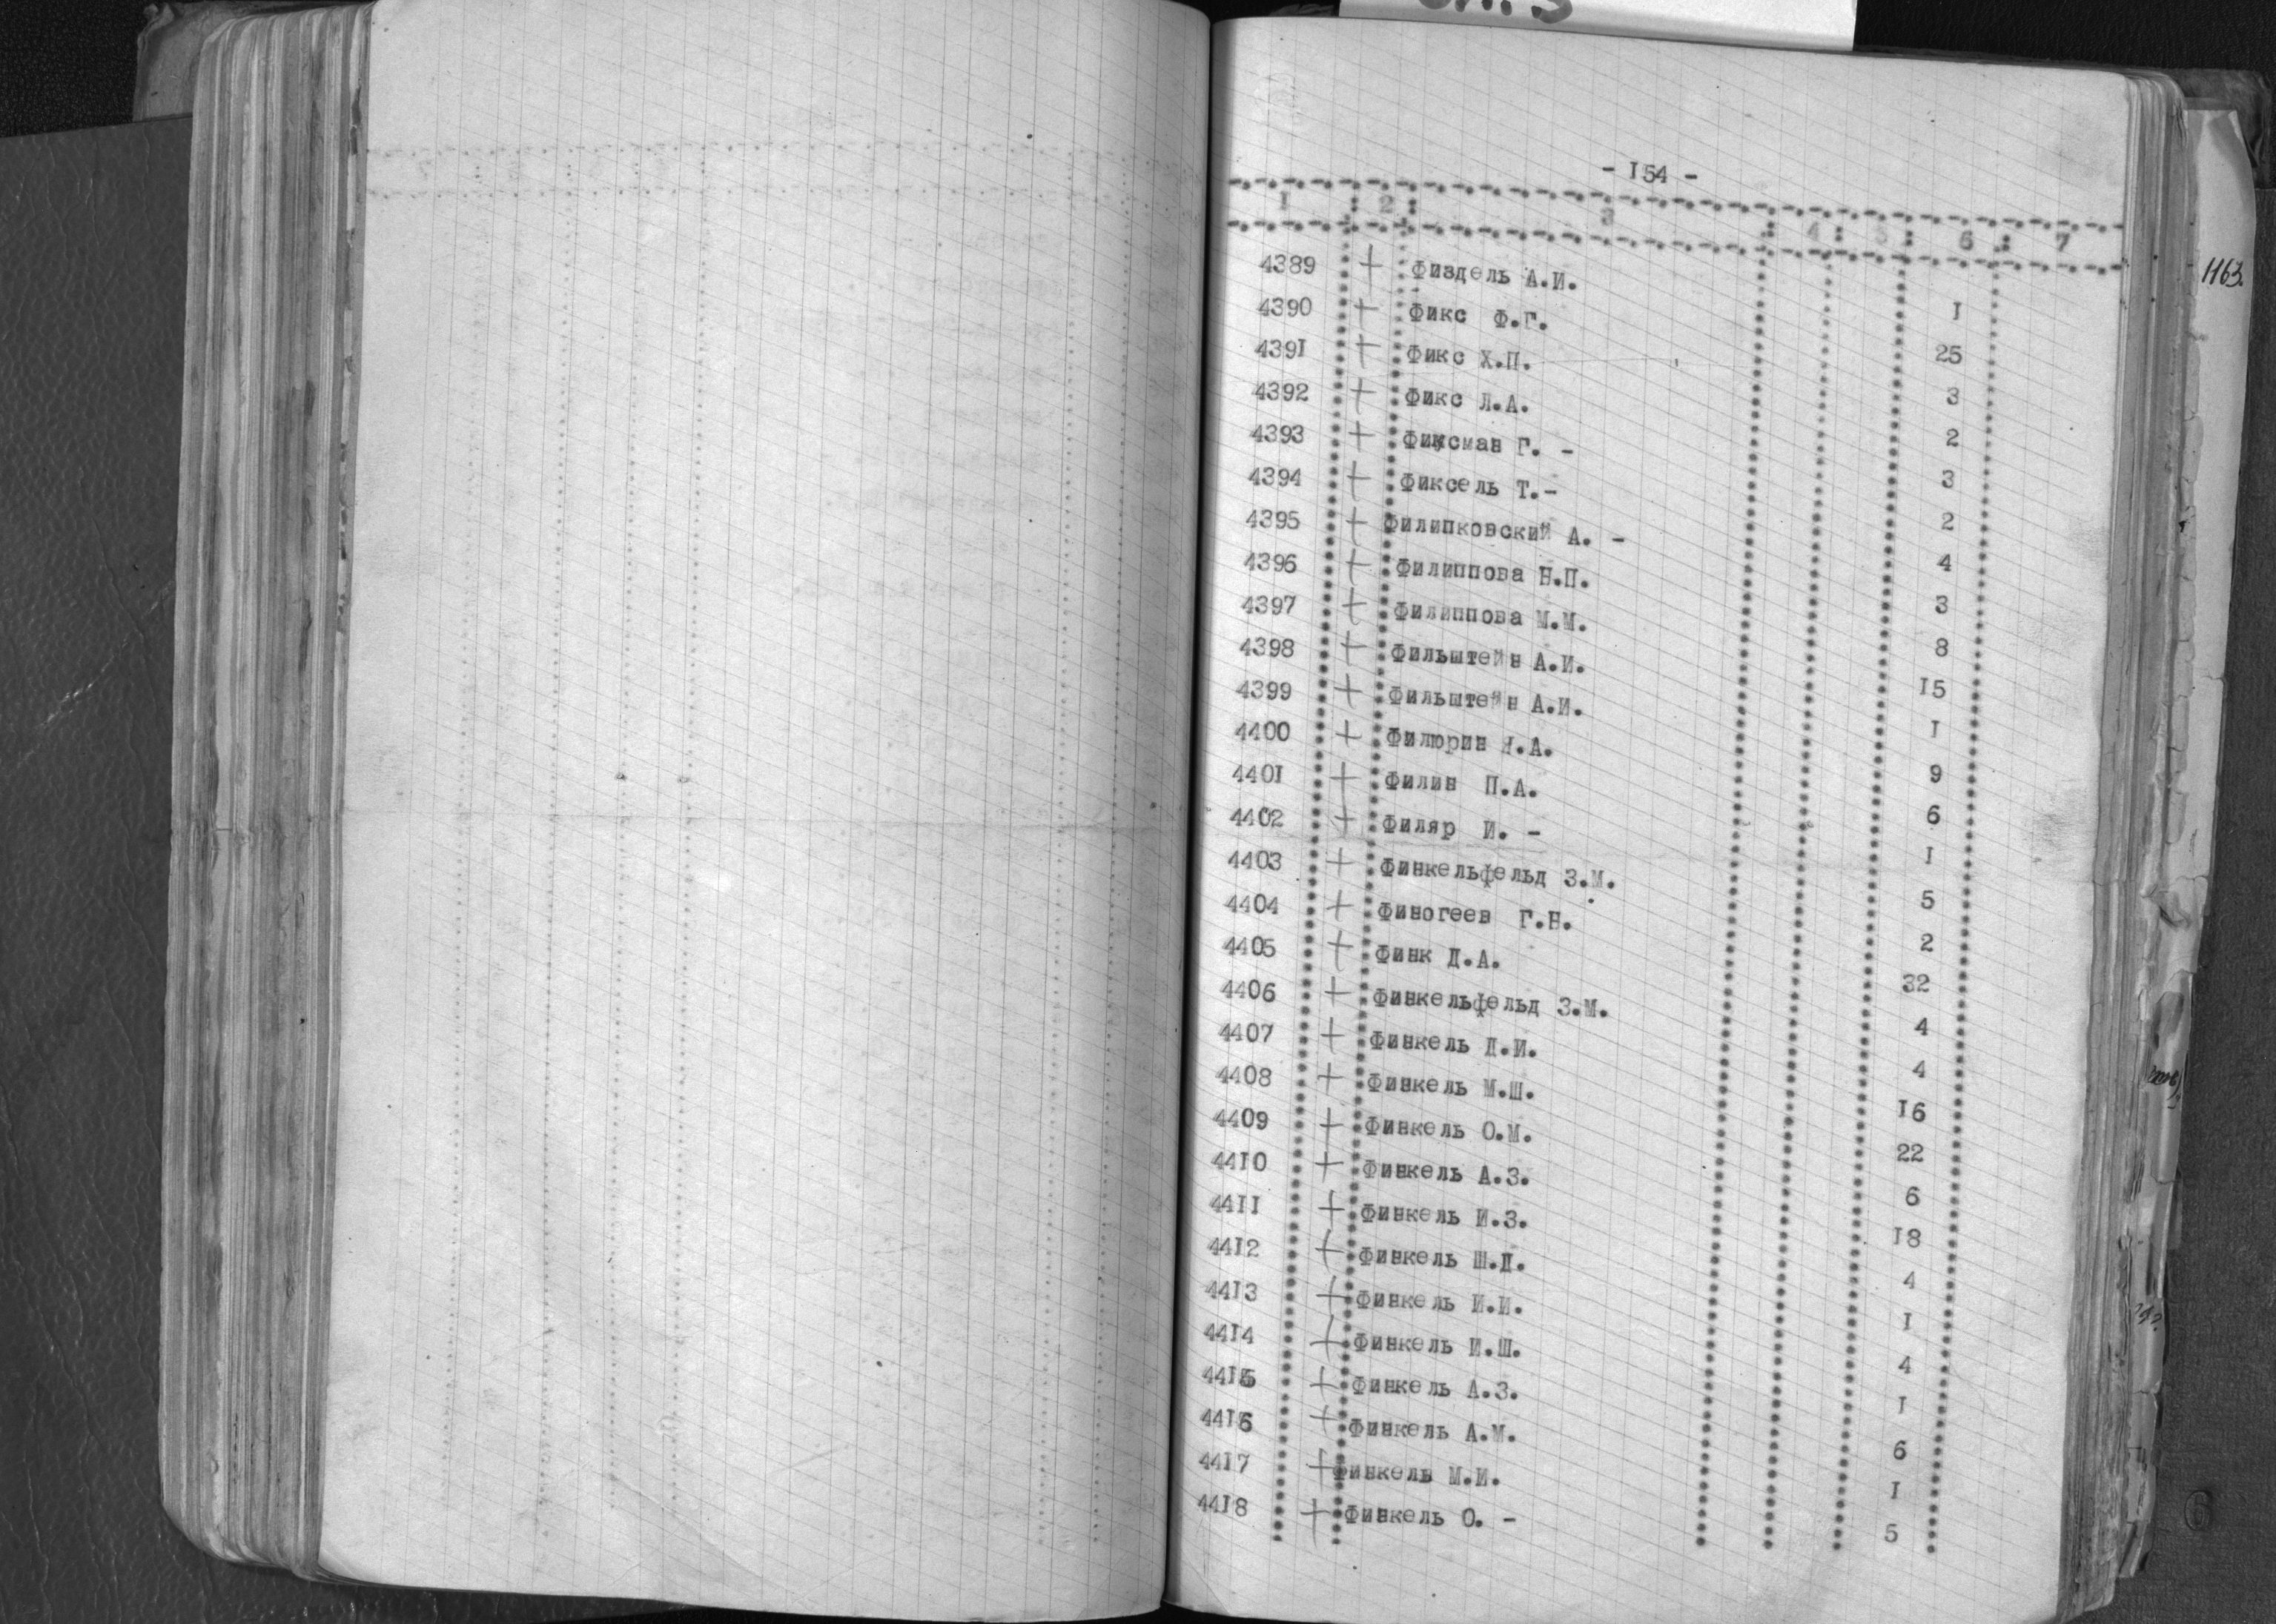 - I54 -
I : 2 : 3 : 4 : 5 : 6 : 7
4389 + Физдель А.И. I
4390 + Фикс Ф.Г. 25
439I + Фикс Х.П. 3
4392 + Фикс Л.А. 2
4393 + Фиксман Г. - 3
4394 + Фиксель Т.- 2
4395 + Филипковский А. - 4
4396 + Филиппова Н.П. 3
4397 + Филиппова М.М. 8
4398 + Фильштейн А.И. I5
4399 + Фильштейн А.И. I
4400 + Филюрин 9
440I + Филин П.А. 6
4402 + Филяр И. - I
4403 + Финкельфельд З.М. 5
4404 + Финогеев Г.Н. 2
4405 + Финк Д.А. 32
4406 + Финкельфельд З.М. 4
4407 + Финкель Д.И. 4
4408 + Финкель М.Ш. I6
4409 + Финкель О.М. 22
44I0 + Финкель А.З. 6
44II + Финкель И.З. I8
44I2 + Финкель Ш.Д. 4
44I3 + Финкель И.И. I
44I4 + Финкель И.Ш. 4
44I5 + Финкель А.З. I
44I6 + Финкель А.М. 6
44I7 + Финкель М.И. I
44I8 + Финкель О. - 5
1163.